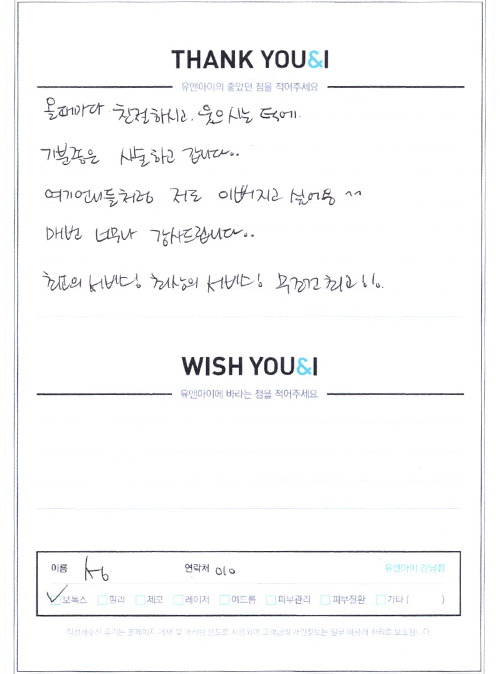 THANK YOU&I
유앤아이의 좋았던 점을 적어주세요
올때마다 친절하시고. 웃으시는 덕에.
기분좋은 시술하고 갑니다..
여기언니들처럼 저도 이뻐지고 싶어용 ^^
매번 너무나 감사드립니다..
최고의 서비스! 최상의 서비스! 무조건 최고!!.
WISH YOU&I
유앤아이에 바라는 점을 적어주세요
이름 연락처 010 유앤아이 강남점
보톡스 필러 제모 레이저 여드름 피부관리 피부질환 기타 ( )